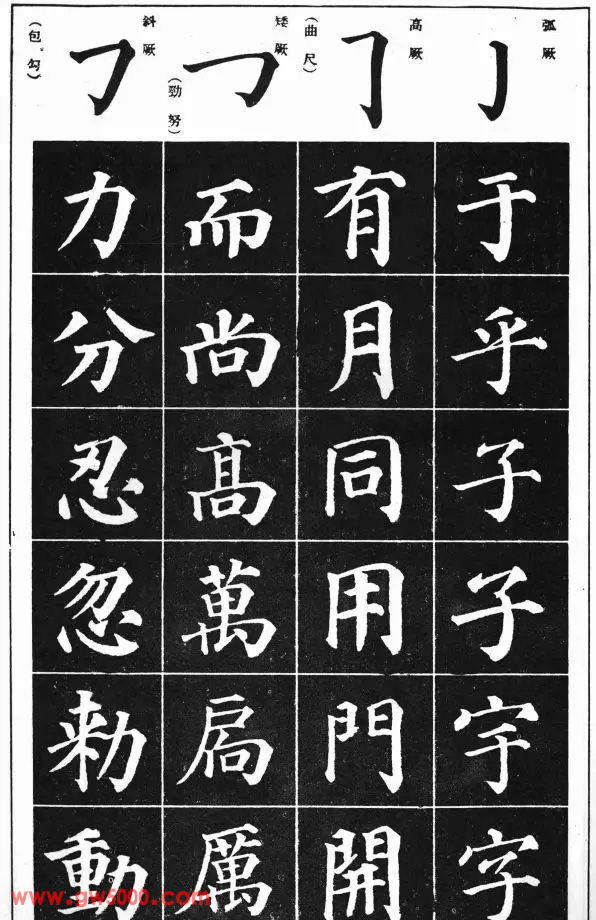 弧厥
于乎子子宇字
高厥
(曲尺)
有月同用門開
矮厥
(勁努)
而尚髙萬扃厲
斜厥
(包、勾)
力分忍忽勑動
www.gw5000.com